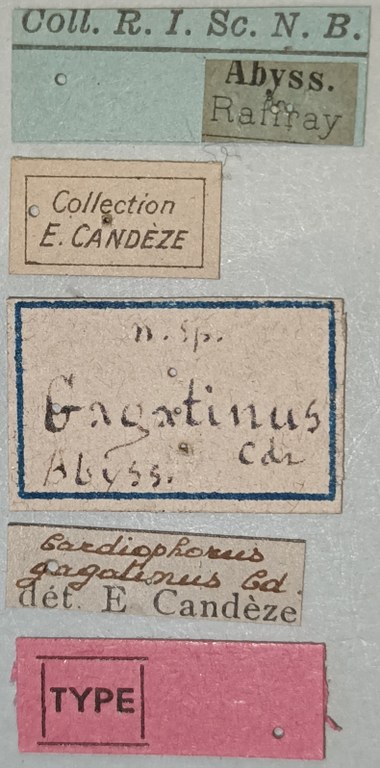 Coll. R. I. Sc. N. B.
Abyss.
Raffray
Collection
E. CANDÈZE
n. sp.
Gagatinus
Cdz
Abyss.
Cardiophorus
gagatinus Cd.
dét. E Candèze
TYPE